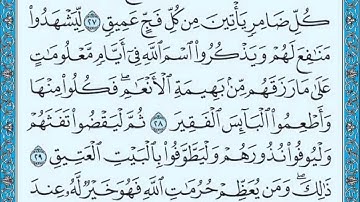 كُلِّ ضَامِرٍ يَأْتِينَ مِن كُلِّ فَجٍّ عَمِيقٍ ٢٧ لِّيَشْهَدُوا۟
مَنَٰفِعَ لَهُمْ وَيَذْكُرُوا۟ ٱسْمَ ٱللَّهِ فِىٓ أَيَّامٍ مَّعْلُومَٰتٍ
عَلَىٰ مَا رَزَقَهُم مِّنۢ بَهِيمَةِ ٱلْأَنْعَٰمِ ۖ فَكُلُوا۟ مِنْهَا
وَأَطْعِمُوا۟ ٱلْبَآئِسَ ٱلْفَقِيرَ ٢٨ ثُمَّ لْيَقْضُوا۟ تَفَثَهُمْ
وَلْيُوفُوا۟ نُذُورَهُمْ وَلْيَطَّوَّفُوا۟ بِٱلْبَيْتِ ٱلْعَتِيقِ ٢٩
ذَٰلِكَ ۖ وَمَن يُعَظِّمْ حُرُمَٰتِ ٱللَّهِ فَهُوَ خَيْرٌ لَّهُۥ عِندَ